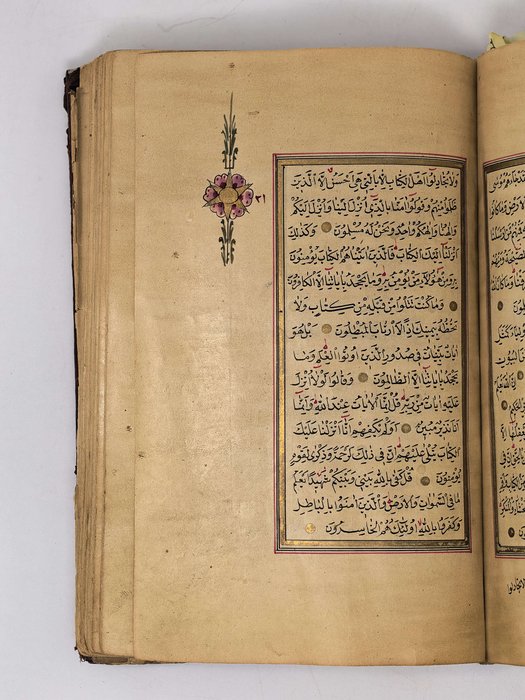 ٢١
وَلَا تُجَادِلُوا اَهْلَ الْكِتَابِ اِلَّا بِالَّتٖي هِيَ اَحْسَنُ اِلَّا الَّذٖينَ
ظَلَمُوا مِنْهُمْ وَقُولُوا اٰمَنَّا بِالَّذٖي اُنْزِلَ اِلَيْنَا وَاُنْزِلَ اِلَيْكُمْ
وَاِلٰهُنَا وَاِلٰهُكُمْ وَاحِدٌ وَنَحْنُ لَهُ مُسْلِمُونَ وَكَذٰلِكَ
اَنْزَلْنَا اِلَيْكَ الْكِتَابَ فَالَّذٖينَ اٰتَيْنَاهُمُ الْكِتَابَ يُؤْمِنُونَ
بِهٖ وَمِنْ هٰؤُلَاءِ مَنْ يُؤْمِنُ بِهٖ وَمَا يَجْحَدُ بِاٰيَاتِنَا اِلَّا الْكَافِرُونَ
وَمَا كُنْتَ تَتْلُوا مِنْ قَبْلِهٖ مِنْ كِتَابٍ وَلَا
تَخُطُّهُ بِيَمٖينِكَ اِذًا لَارْتَابَ الْمُبْطِلُونَ بَلْ هُوَ
اٰيَاتٌ بَيِّنَاتٌ فٖي صُدُورِ الَّذٖينَ اُوتُوا الْعِلْمَ وَمَا
يَجْحَدُ بِاٰيَاتِنَا اِلَّا الظَّالِمُونَ وَقَالُوا لَوْلَا اُنْزِلَ
عَلَيْهِ اٰيَاتٌ مِنْ رَبِّهٖ قُلْ اِنَّمَا الْاٰيَاتُ عِنْدَ اللّٰهِ وَاِنَّمَا
اَنَا نَذٖيرٌ مُبٖينٌ اَوَلَمْ يَكْفِهِمْ اَنَّا اَنْزَلْنَا عَلَيْكَ
الْكِتَابَ يُتْلٰى عَلَيْهِمْ اِنَّ فٖي ذٰلِكَ لَرَحْمَةً وَذِكْرٰى لِقَوْمٍ
يُؤْمِنُونَ قُلْ كَفٰى بِاللّٰهِ بَيْنٖي وَبَيْنَكُمْ شَهٖيدًا يَعْلَمُ
مَا فِي السَّمٰوَاتِ وَالْاَرْضِ وَالَّذٖينَ اٰمَنُوا بِالْبَاطِلِ
وَكَفَرُوا بِاللّٰهِ اُولٰئِكَ هُمُ الْخَاسِرُونَ